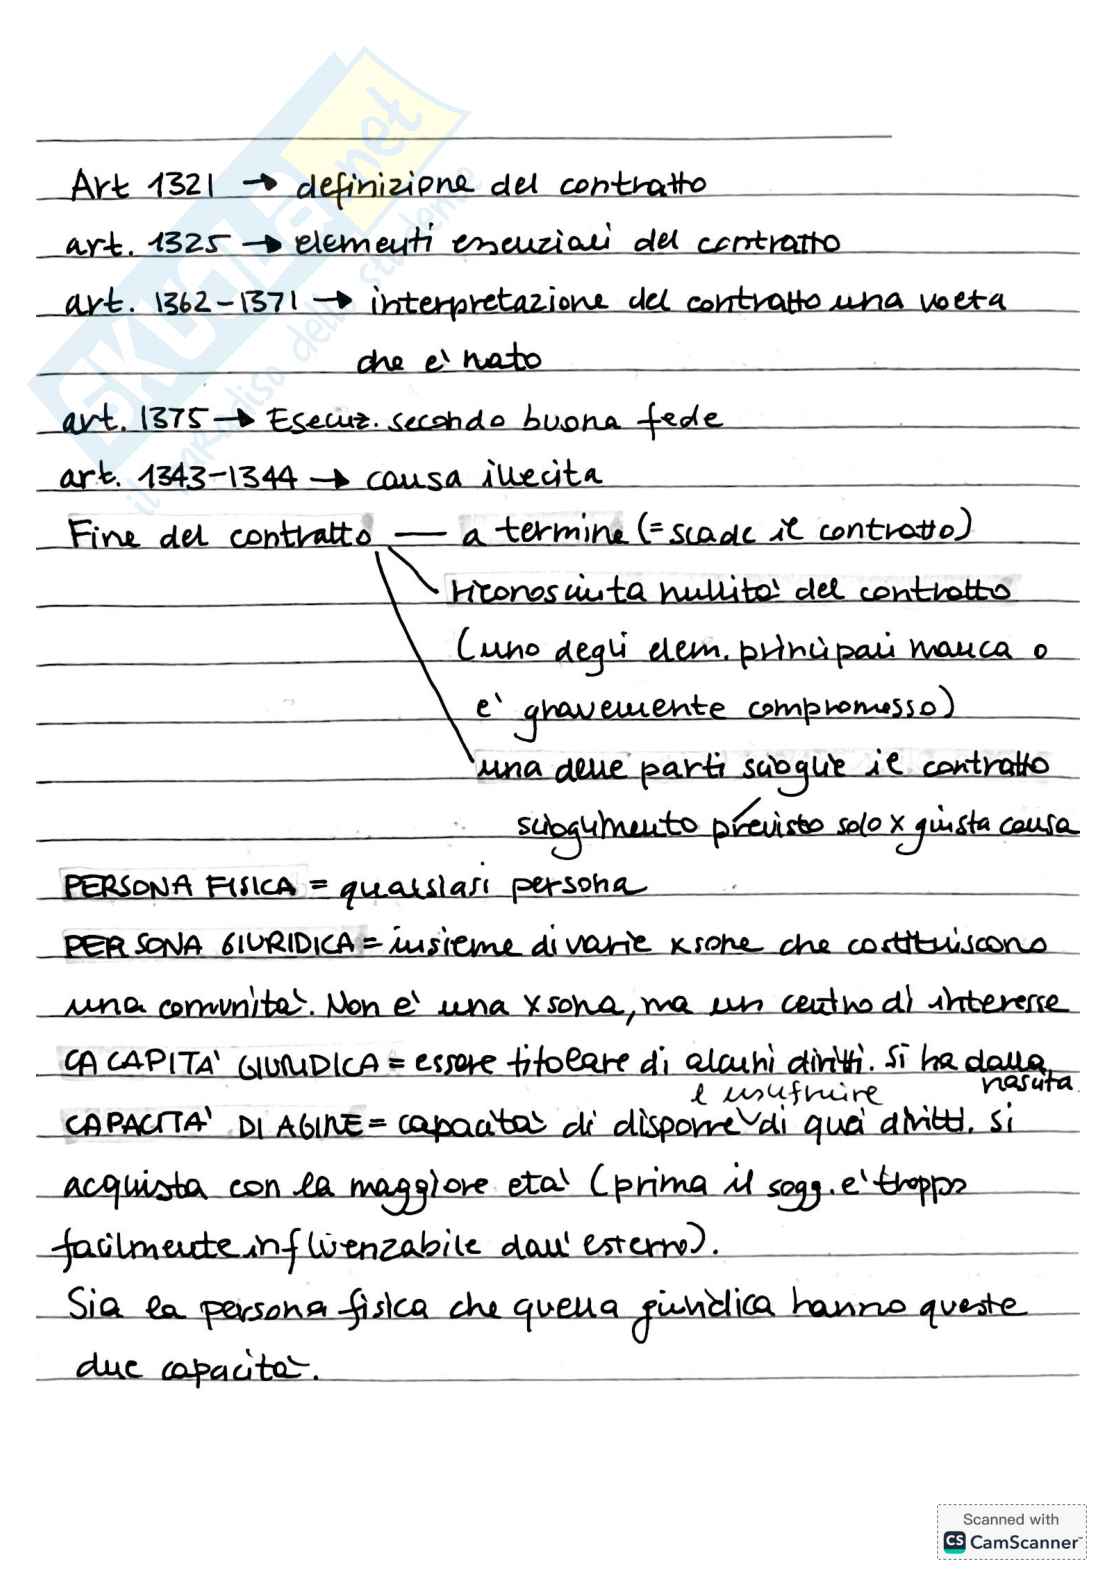 Art 1321 → definizione del contratto
art. 1325 → elementi essenziali del contratto
art. 1362-1371 → interpretazione del contratto una volta
che e' nato
art. 1375 → Esecuz. secondo buona fede
art. 1343-1344 → causa illecita
Fine del contratto — a termine (= scade il contratto)
riconosciuta nullità del contratto
(uno degli elem. principali manca o
e' gravemente compromesso)
una delle parti scioglie il contratto
scioglimento previsto solo x giusta causa
PERSONA FISICA = qualsiasi persona
PERSONA GIURIDICA = insieme di varie xsone che costituiscono
una comunità. Non e' una xsona, ma un centro di interesse
CA CAPITA' GIURIDICA = essere titolare di alcuni diritti. Si ha dalla
nascita
e usufruire
CAPACITA' DI AGIRE = capacità di disporre di quei diritti. Si
acquista con la maggiore eta' (prima il sogg. e' troppo
facilmente influenzabile dall'esterno).
Sia la persona fisica che quella giuridica hanno queste
due capacità.
SKUOLA.net
il paradiso dello studente
Scanned with
CS CamScanner